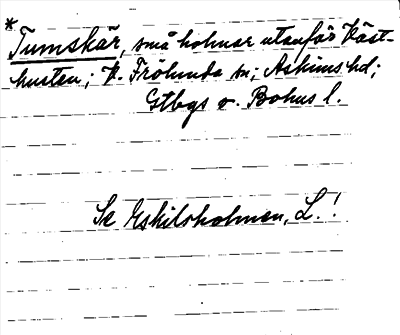 * Tumskär, små holmar utanför Väst-
kusten; V. Frölunda sn; Askims hd;
Gtbgs o. Bohus l.
Se Eskilsholmen, L.!